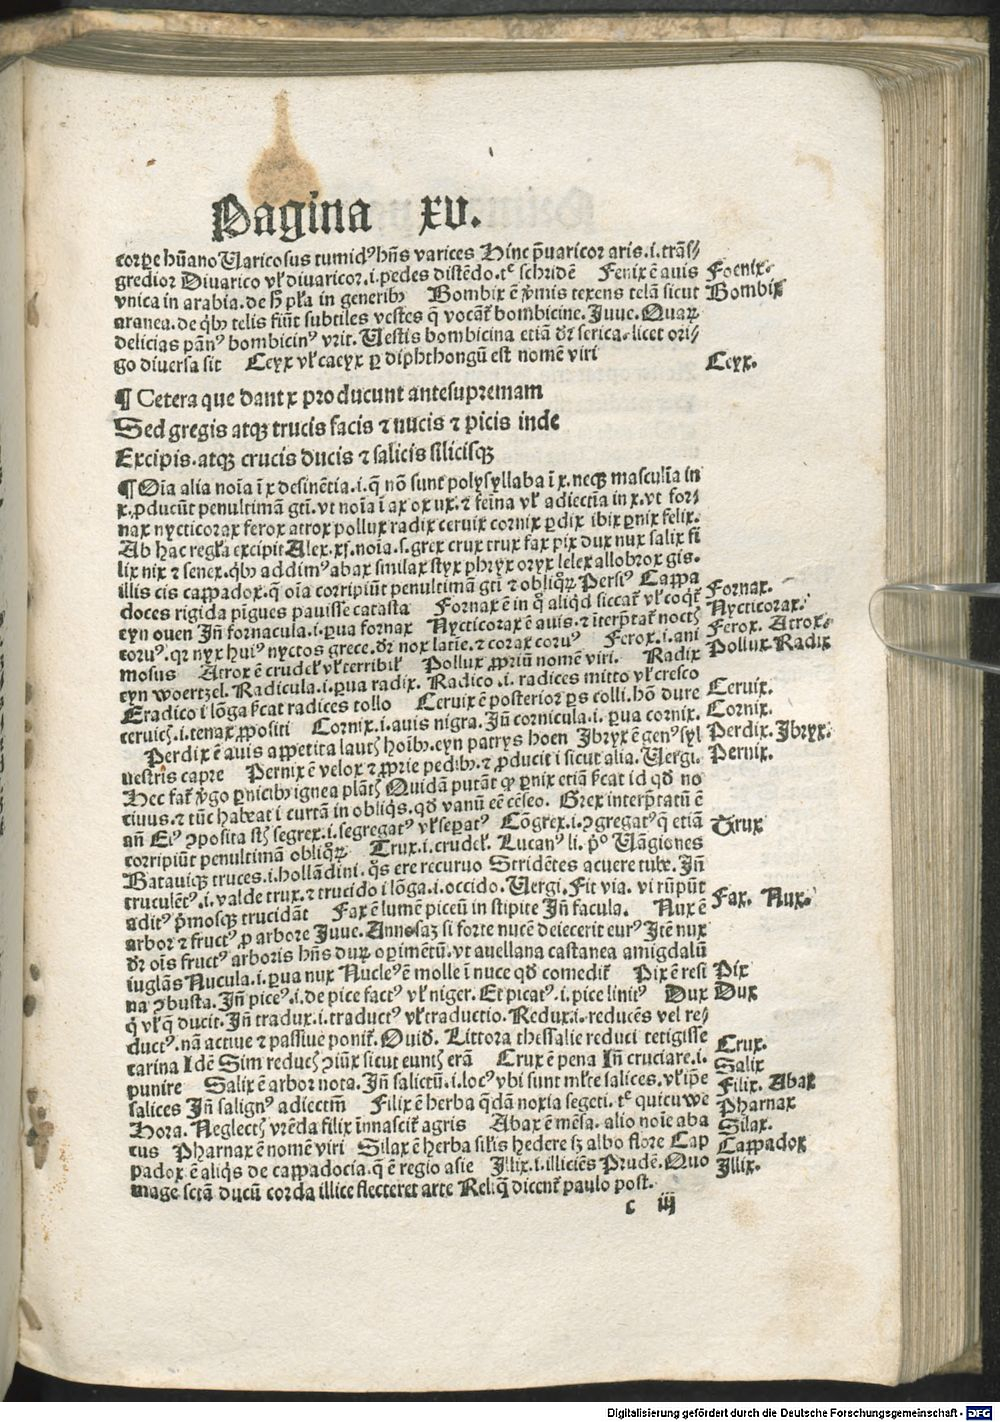 Pagina xv.
corpe hūano Uaricosus tumidꝰ hn̄s varices Hinc p̄uaricor aris .i. trās⸗
gredior Diuarico vl̓ diuaricor .i. pedes distēdo. tc̄ schridē Fenix ē auis
vnica in arabia. de hͦ pl̓a in generibꝫ Bombix ē v̓mis texens telā sicut
aranea. de qͥbꝫ telis fiūt subtiles vestes q̄ vocāt̓ bombicine. Juue. Quaꝝ
delicias pānꝰ bombicinꝰ vrit. Uestis bombicina etiā dr̄ serica. licet ori⸗
go diuersa sit Ceyx vl̓ caeyx ꝑ diphthongū est nomē viri
Foenix.
Bombix
Ceyx.
¶ Cetera que dant x producunt antesupremam
Sed gregis atqꝫ trucis facis ⁊ nucis ⁊ picis inde
Excipis. atqꝫ crucis ducis ⁊ salicis silicisqꝫ
¶ Oīa alia noīa ī x desinētia .i. q̄ nō sunt polysyllaba ī x. necqꝫ masculīa in
x. ꝓducūt penultimā gtī. vt noīa ī ax ox ux. ⁊ feīna vl̓ adiectīa in x. vt for⸗
nax nycticorax ferox atrox pollux radix ceruix cornix ꝑdix ibix ꝑnix felix.
Ab hac regl̓a excipit Alex. xj. noīa .s. grex crux trux fax pix dux nux salix fi
lix nix ⁊ senex. qͥbꝫ addimꝰ abax smilax styx phryx oryx lelex allobrox gis.
illis cis cappadox. q̄ oīa corripiūt penultimā gtī ⁊ obliqͦꝝ Persiꝰ Cappa
doces rigida pīgues pauisse catasta Fornax ē in q̄ aliqͥd siccat̓ vl̓ coqͥt̓
eyn ouen Jn̄ fornacula .i. ꝑua fornax Nycticorax ē auis. ⁊ īterp̄tat̓ noctꝭ
coruꝰ. qꝛ nyx huiꝰ nyctos grece. dr̄ nox latie. ⁊ corax coruꝰ Ferox .i. ani
mosus Atrox ē crudel̓ vl̓ terribil̓ Pollux ꝓpriū nomē viri. Radix
eyn woertzel. Radicula .i. ꝑua radix. Radico .i. radices mitto vl̓ cresco
Eradico ī lōga p̄cat radices tollo Ceruix ē posterior ꝑs colli. hō dure
ceruicꝭ .i. tenax ꝓpositi Cornix .i. auis nigra. Jn̄ cornicula .i. ꝑua cornix.
Perdix ē auis appetita lautꝭ hoībꝫ. eyn patrys hoen Jbryx ē genꝰ syl
uestris capre Pernix ē velox ⁊ ꝓprie pedibꝫ. ⁊ ꝓducit i sicut alia. Uergi.
Hec fat̓ v̓go ꝑnicibꝫ ignea plātꝭ Quidā putāt ꝙ ꝑnix etiā p̄cat id qd̄ no
ciuus. ⁊ tūc habeat i curtā in obliqͥs. qd̄ vanū eē cēseo. Grex interp̄tatū ē
añ Eiꝰ ꝯposita st̄ segrex .i. segregatꝰ vl̓ seꝑatꝰ Cōgrex .i. ꝯgregatꝰ q̄ etiā
corripiūt penultimā obliqͦꝝ Trux .i. crudel̓. Lucanꝰ li. pͦ Uāgiones
Batauiqꝫ truces .i. hollādini. qͦs ere recuruo Stridētes acuere tube. Jn̄
truculētꝰ .i. valde trux. ⁊ trucido i lōga .i. occido. Uergi. Fit via. vi rūpūt
aditꝰ p̄mosqꝫ trucidāt Fax ē lumē piceū in stipite Jn̄ facula. Nux ē
arbor ⁊ fructꝰ. ꝓ arbore Juue. Annosaꝫ si forte nucē deiecerit eurꝰ Jtē nux
dr̄ oīs fructꝰ arboris hn̄s duꝝ oꝑimētū. vt auellana castanea amigdalū
iuglās Nucula .i. ꝑua nux Nucleꝰ ē molle ī nuce qd̄ comedit̓ Pix ē resi
na ꝯbusta. Jn̄ piceꝰ .i. de pice factꝰ vl̓ niger. Et picatꝰ .i. pice linitꝰ Dux
qͥ vl̓ q̄ ducit. Jn̄ tradux .i. traductꝰ vl̓ traductio. Redux .i. reducēs vel re⸗
ductꝰ. nā actiue ⁊ passiue ponit̓. Ouid̄. Littora thessalie reduci tetigisse
carina Jdē Sim reducꝭ ꝯiūx sicut euntꝭ erā Crux ē pena Jn̄ cruciare .i.
punire Salix ē arbor nota. Jn̄ salictū .i. locꝰ vbi sunt ml̓te salices. vl̓ ip̄e
salices Jn̄ salignꝰ adiectm̄ Filix ē herba q̄dā noxia segeti. tc̄ quicuwe
Hora. Neglectꝭ vrēda filix īnascit̓ agris Abax ē mēsa. alio noīe aba
cus Pharnax ē nomē viri Silax ē herba sil̓is hedere sꝫ albo flore Cap
padox ē aliqͥs de cappadocia. q̄ ē regio asie Jllix .i. illiciēs Prudē. Quo
mage sctā ducū corda illice flecteret arte Reliq̄ dicent̓ paulo post.
Fornax.
Nycticorax.
Ferox. Atrox.
Pollux. Radix
Ceruix.
Cornix.
Perdix. Jbryx.
Pernix.
Trux
Fax. Nux.
Pix
Dux
Crux.
Salix
Filix. Abax
Pharnax
Silax.
Cappadox
Jllix.
c iij
Digitalisierung gefördert durch die Deutsche Forschungsgemeinschaft - DFG